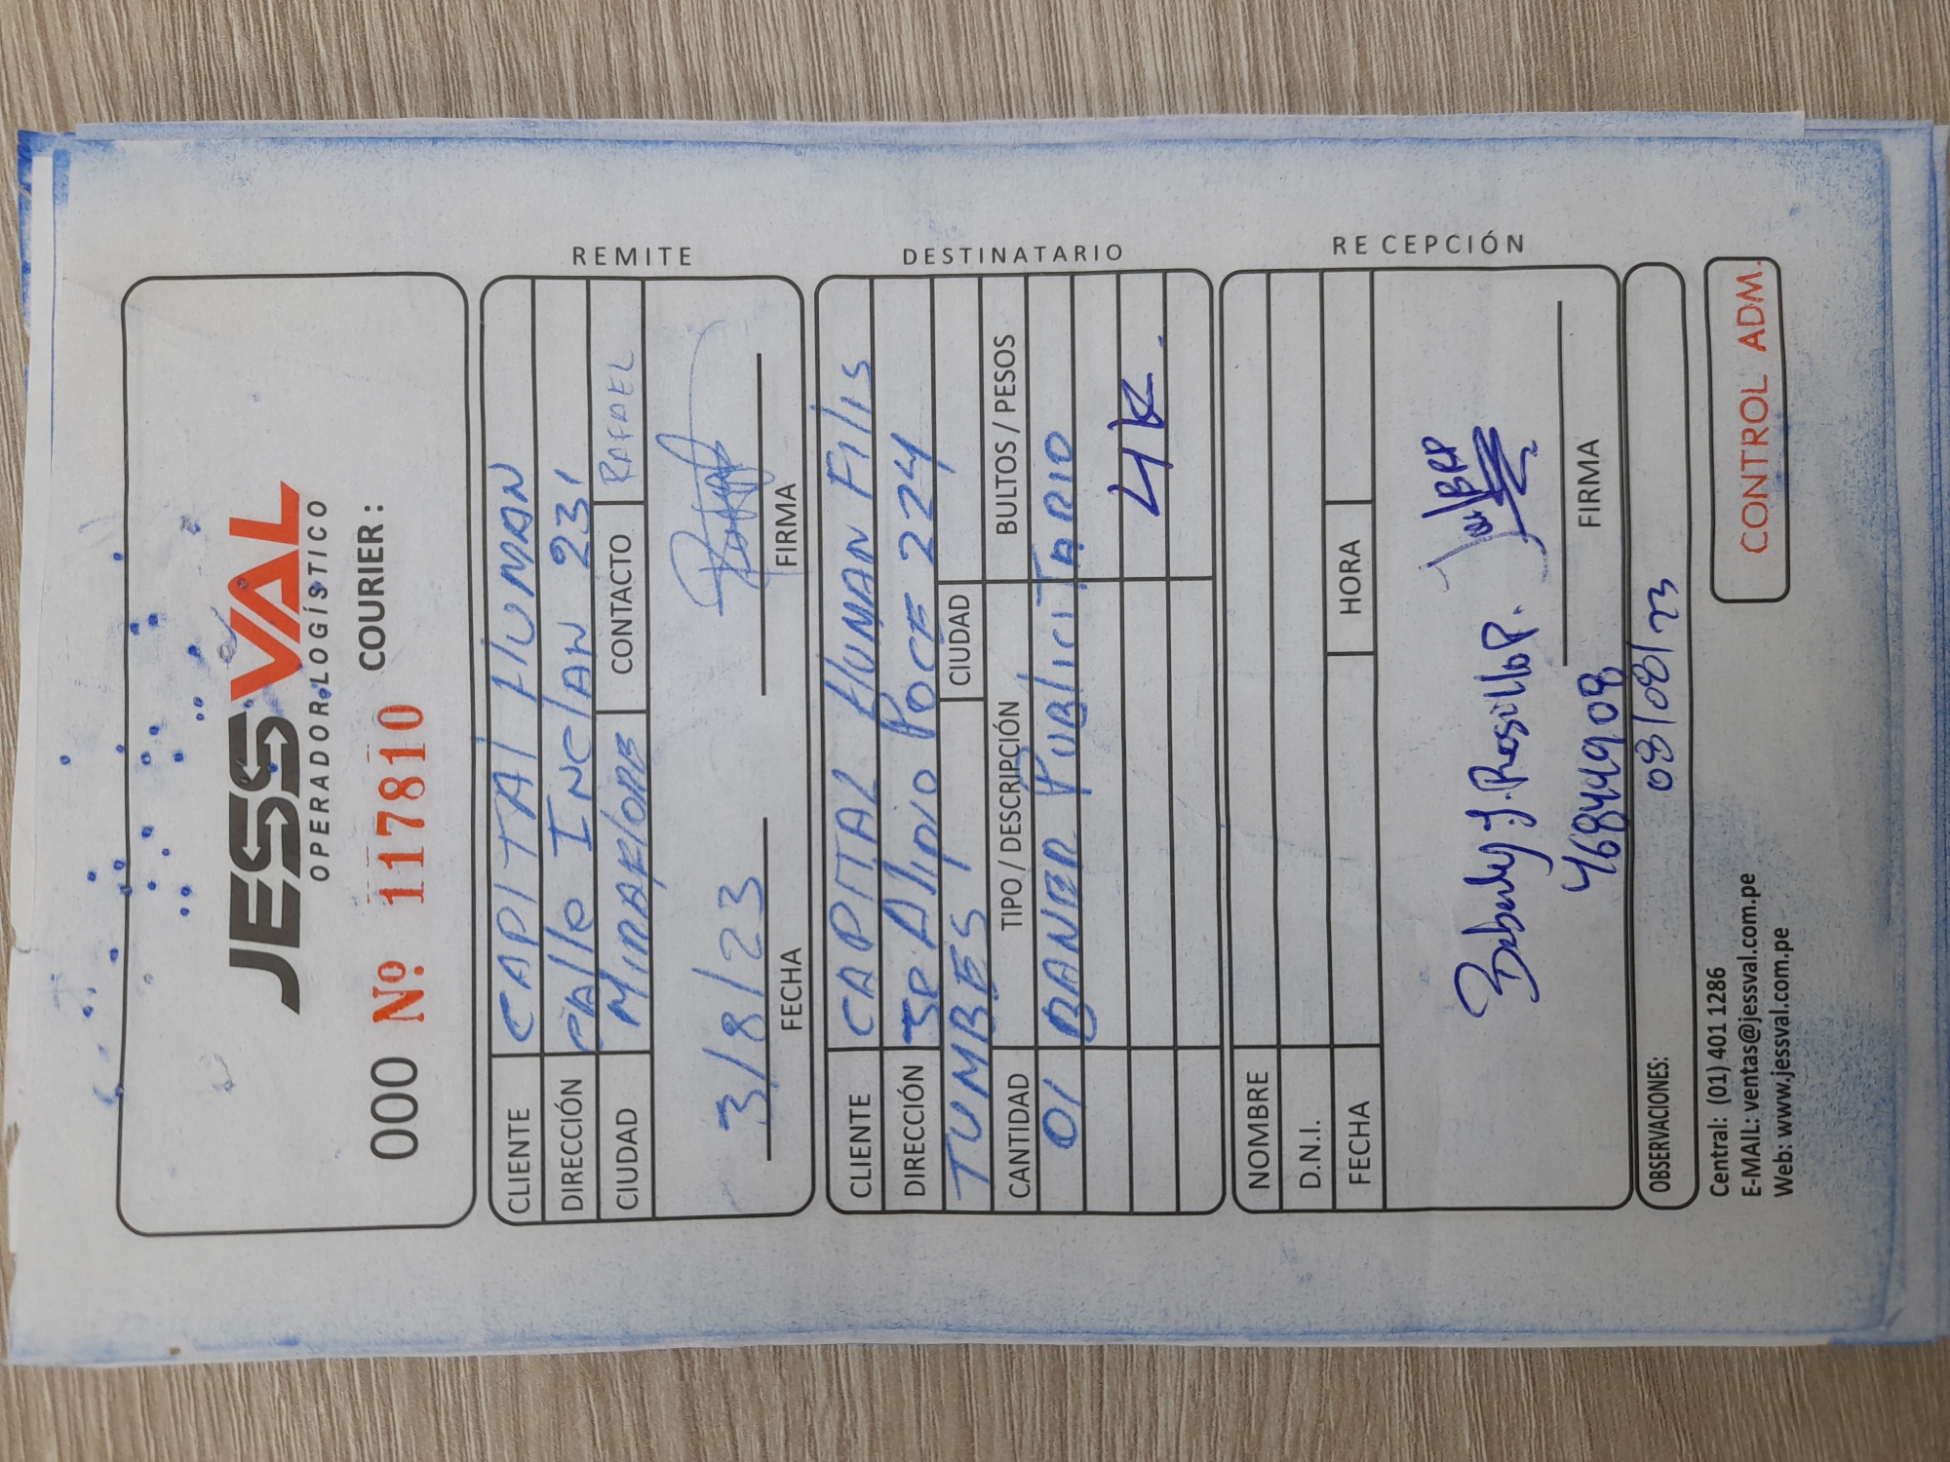 JESSVAL
OPERADOR LOGÍSTICO
000 Nº 117810 COURIER :
CLIENTE CAPITAl HUMAN
DIRECCIÓN calle INClAN 231
CIUDAD MIRAFlORES CONTACTO RAFAEL
3/8/23
FECHA FIRMA
REMITE
CLIENTE CAPITAL HUMAN FIlIS
DIRECCIÓN Alipio PoCE 224
TUMBES CIUDAD
CANTIDAD TIPO / DESCRIPCIÓN BULTOS / PESOS
01 BANER PUBlICITARIO
4K.
DESTINATARIO
NOMBRE
D.N.I.
FECHA HORA
Beberly J. Rosillo P.
46844908 FIRMA
RECEPCIÓN
OBSERVACIONES: 08/08/23
Central: (01) 401 1286
E-MAIL: ventas@jessval.com.pe
Web: www.jessval.com.pe
CONTROL ADM.